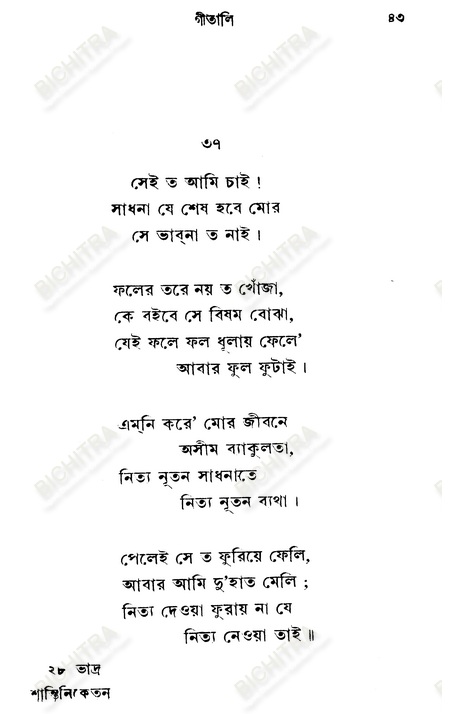 গীতালি ৪৩
৩৭
সেই ত আমি চাই !
সাধনা যে শেষ হবে মোর
সে ভাব্‌না ত নাই ।
ফলের তরে নয় ত খোঁজা,
কে বইবে সে বিষম বোঝা,
যেই ফলে ফল ধূলায় ফেলে’
আবার ফুল ফুটাই ।
এম্‌নি করে’ মোর জীবনে
অসীম ব্যাকুলতা,
নিত্য নূতন সাধনাতে
নিত্য নূতন ব্যথা ।
পেলেই সে ত ফুরিয়ে ফেলি,
আবার আমি দু’হাত মেলি ;
নিত্য দেওয়া ফুরায় না যে
নিত্য নেওয়া তাই ॥
২৮ ভাদ্র
শান্তিনিকেতন
BICHITRA